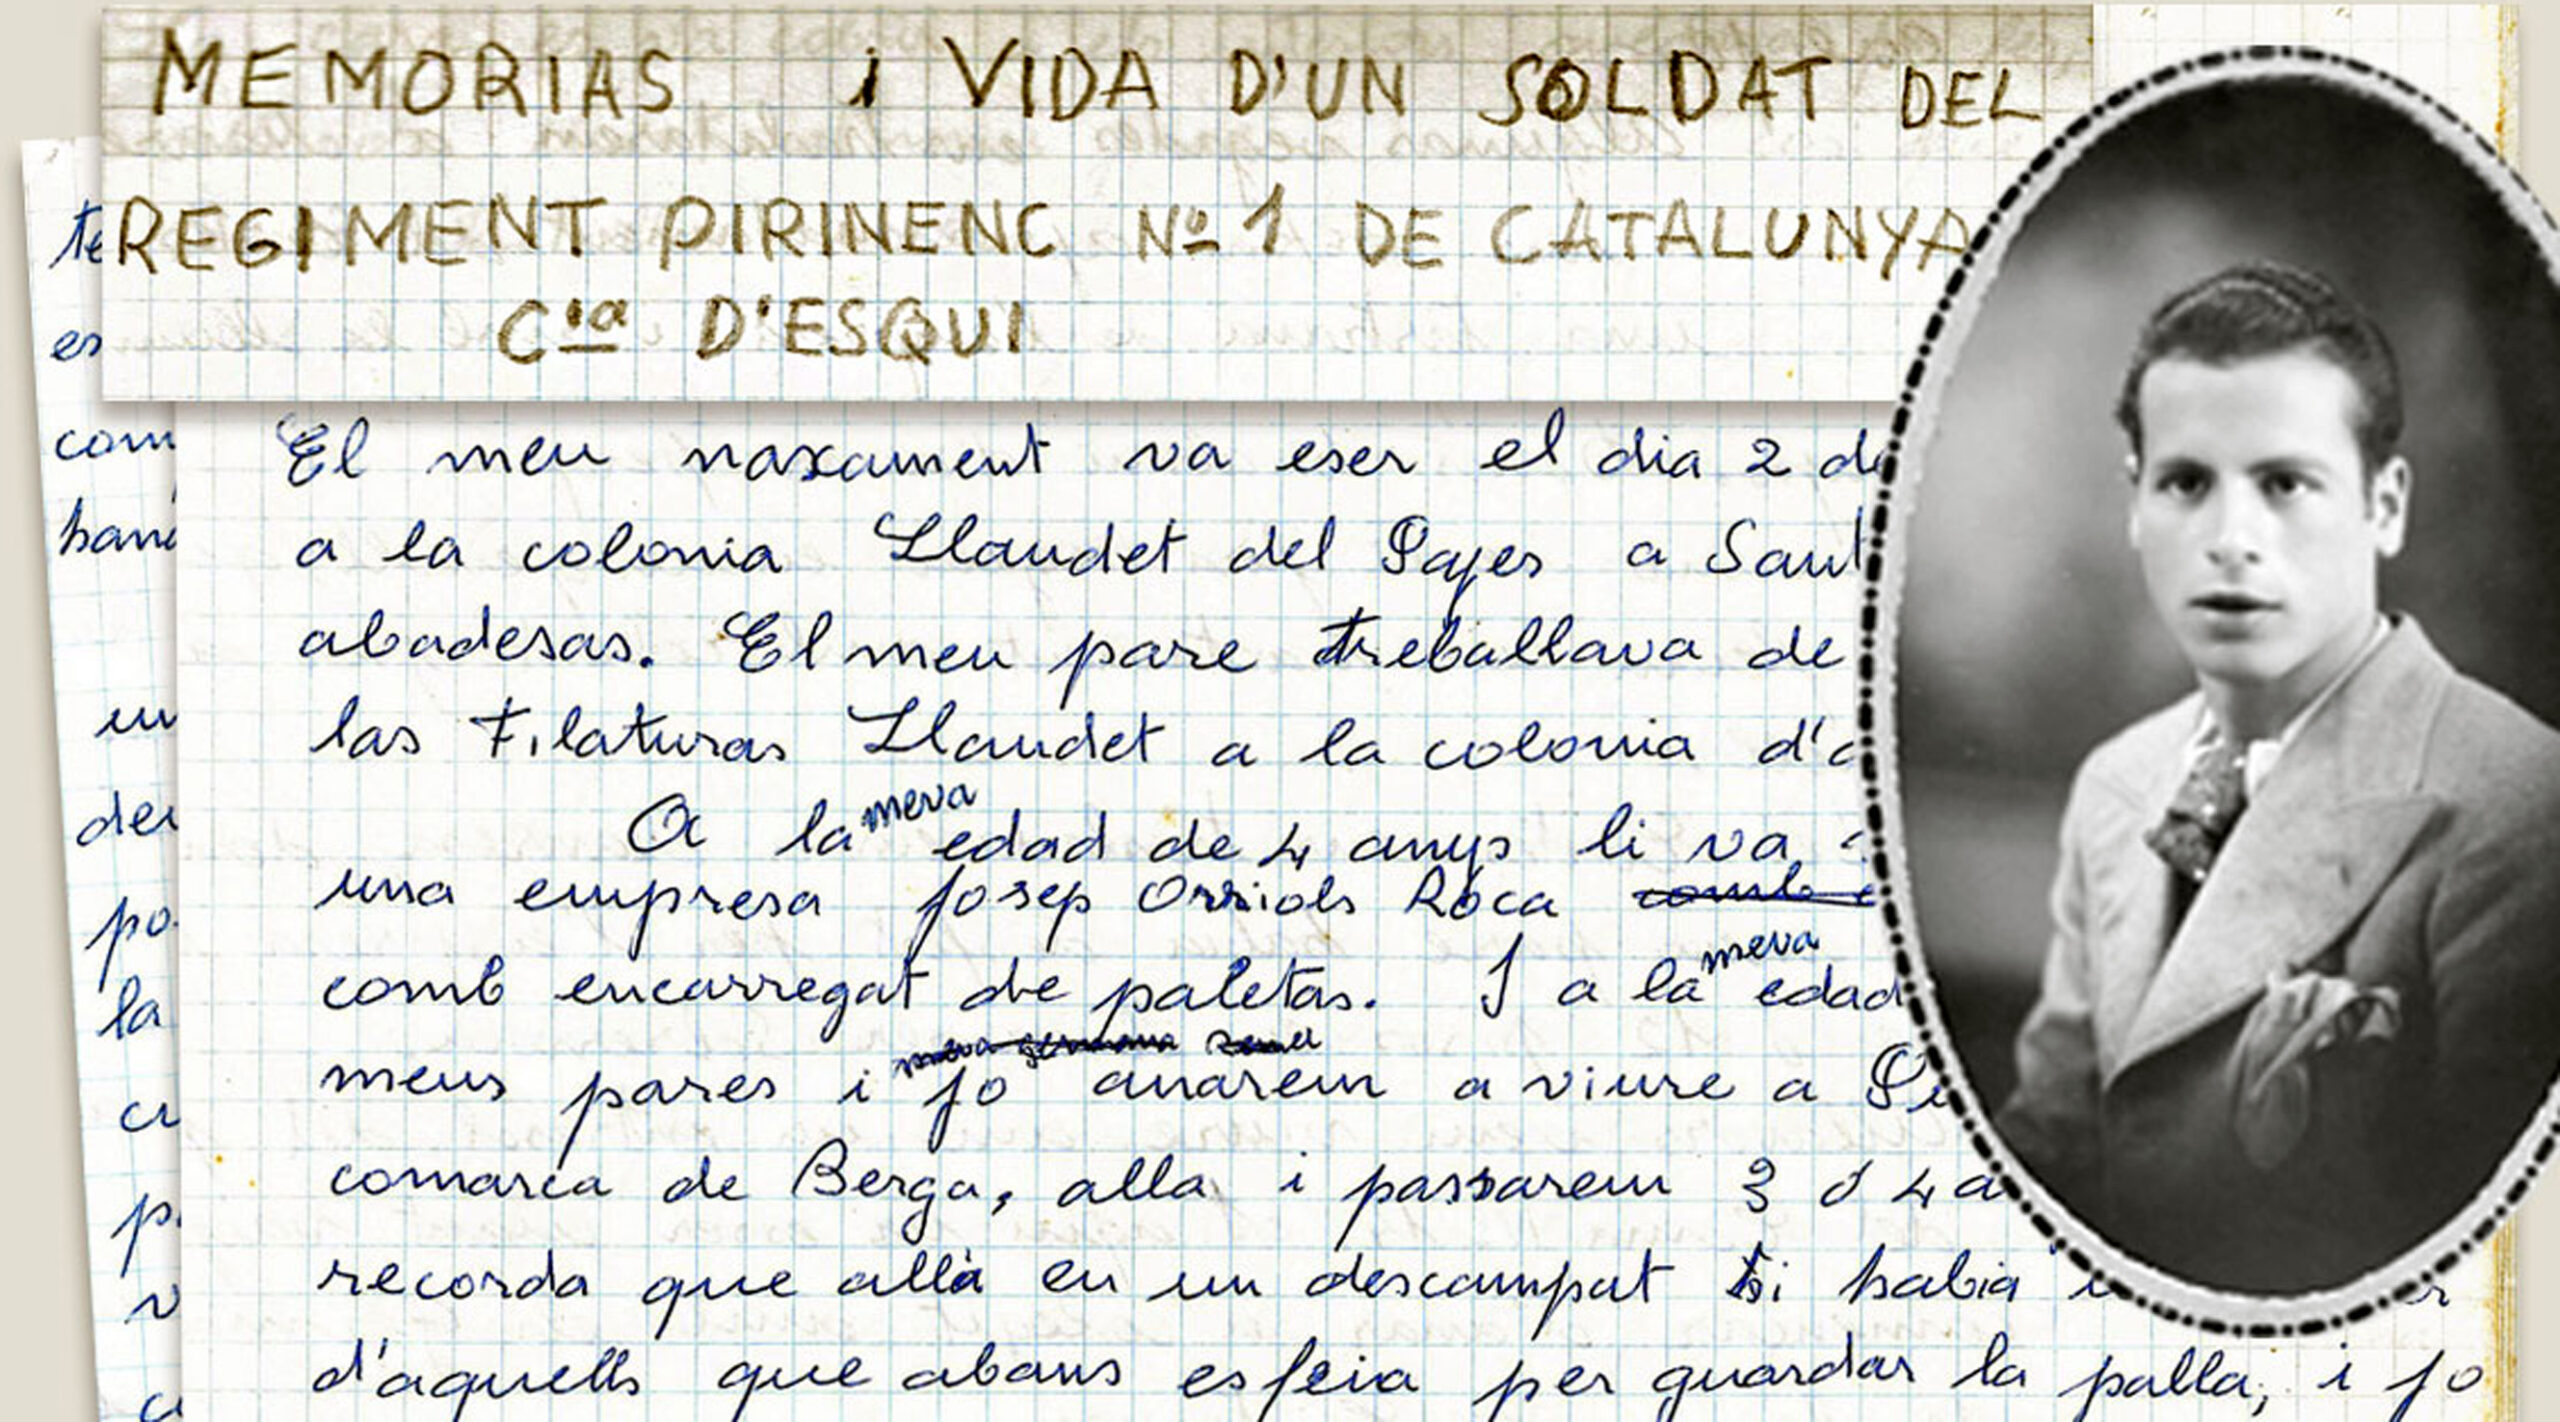 MEMORIAS i VIDA D'UN SOLDAT DEL
REGIMENT PIRINENC Nº 1 DE CATALUNYA
Cia D'ESQUI
El meu naxament va eser el dia 2 de
a la colonia Llaudet del Pajes a Sant
abadesas. El meu pare treballava de
las Filaturas Llaudet a la colonia
A la meva edad de 4 anys li va
una empresa Josep Orriols Roca
comb encarregat de paletas. I a la meva edad
meva germana
meus pares i jo anarem a viure a
comarca de Berga, alla i passarem 3 ó 4
recorda que allà en un descampat hi habia
d'aquells que abans es feia per guardar la palla, i jo
te
es
com
la